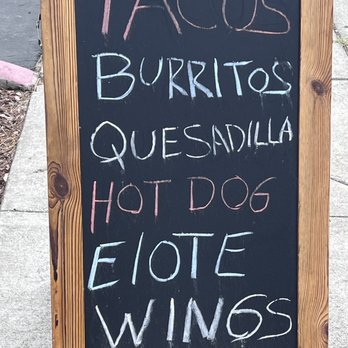 TACOS
BURRITOS
QUESADILLA
HOT DOG
ElOTE
WINGS